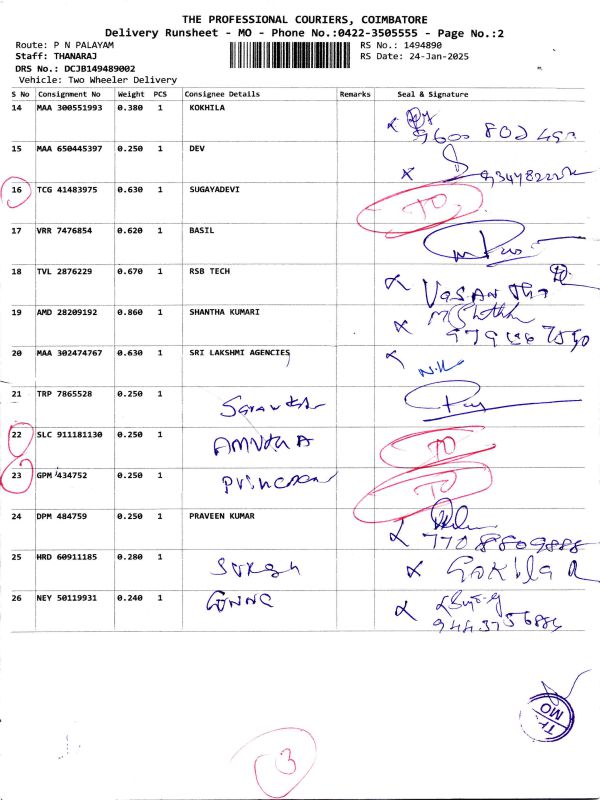 THE PROFESSIONAL COURIERS, COIMBATORE
Delivery Runsheet - MO - Phone No.:0422-3505555 - Page No.:2
Route: P N PALAYAM RS No.: 1494890
Staff: THANARAJ RS Date: 24-Jan-2025
DRS No.: DCJB149489002
Vehicle: Two Wheeler Delivery
S No Consignment No Weight PCS Consignee Details Remarks Seal & Signature
14 MAA 300551993 0.380 1 KOKHILA
15 MAA 650445397 0.250 1 DEV
16 TCG 41483975 0.630 1 SUGAYADEVI TO
17 VRR 7476854 0.620 1 BASIL
18 TVL 2876229 0.670 1 RSB TECH
VASANTha
19 AMD 28209192 0.860 1 SHANTHA KUMARI
20 MAA 302474767 0.630 1 SRI LAKSHMI AGENCIES
21 TRP 7865528 0.250 1
22 SLC 911181130 0.250 1 TO
23 GPM 434752 0.250 1 TO
24 DPM 484759 0.250 1 PRAVEEN KUMAR
7708809888
25 HRD 60911185 0.280 1 Suresh
26 NEY 50119931 0.240 1
3